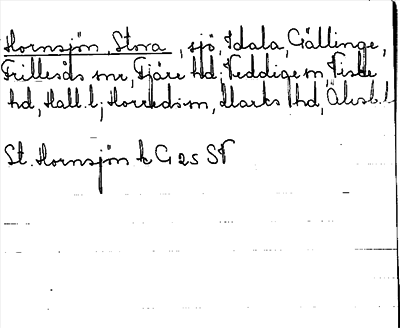 Hornsjön, Stora, sjö, Idala, Gällinge,
Frillesås snr, Fjäre hd, Veddige sn, Viske
hd, Hall. l; Horreds sn, Marks hd, Älvsb. l
St. Hornsjön k G 25 SV